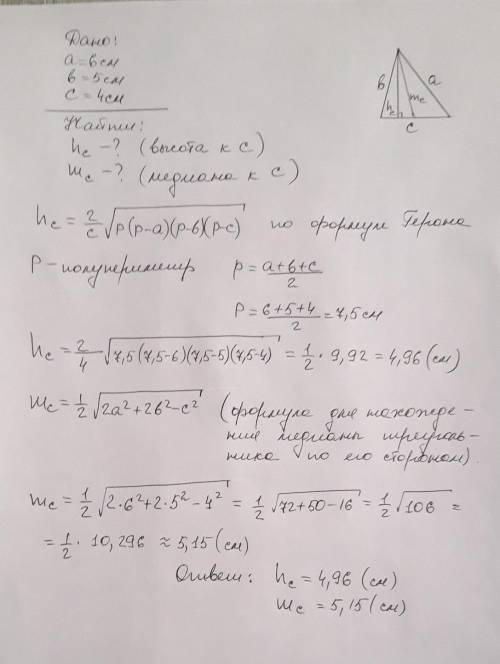 Дано:
a = 6 см
в = 5 см
c = 4 см
Найти:
hc - ? (высота к c)
mc - ? (медиана к c)
в a hc mc c
hc = 2/c √p(p-a)(p-в)(p-c) по формуле Герона
P - полупериметр p = a+в+c/2
P = 6+5+4/2 = 7,5 см
hc = 2/4 √7,5(7,5-6)(7,5-5)(7,5-4) = 1/2 · 9,92 = 4,96 (см)
mc = 1/2 √2a²+2в²-c² (формула для нахожде-
ния медианы треуголь-
ника по его сторонам).
mc = 1/2 √2·6²+2·5²-4² = 1/2 √72+50-16 = 1/2 √106 =
= 1/2 · 10,296 ≈ 5,15 (см)
Ответ: hc = 4,96 (см)
mc = 5,15 (см)